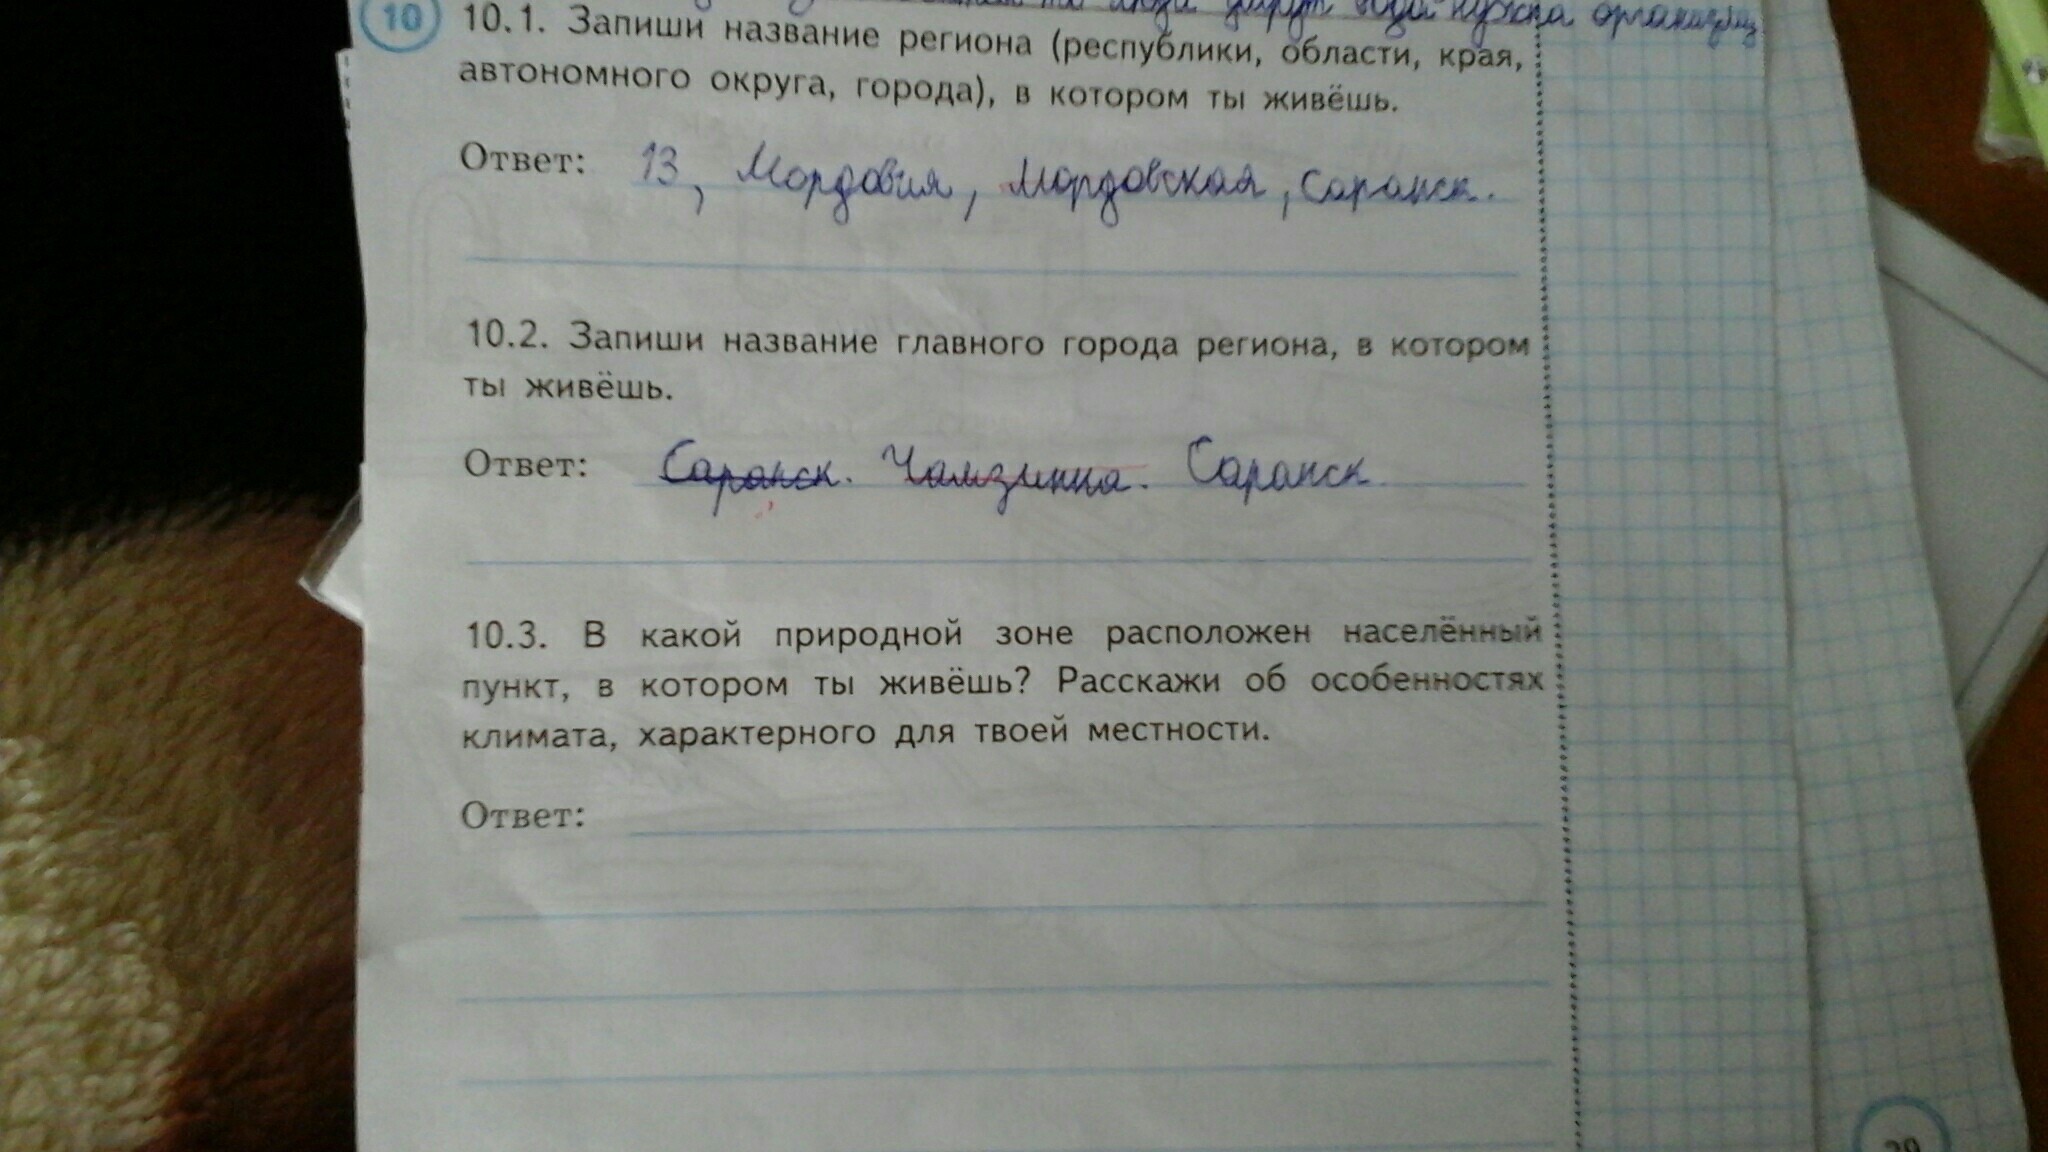 10 10.1. Запиши название региона (республики, области, края,
автономного округа, города), в котором ты живёшь.
Ответ: 13, Мордовия, Мордовская, Саранск.
10.2. Запиши название главного города региона, в котором
ты живёшь.
Ответ: Саранск. Чамзинка. Саранск.
10.3. В какой природной зоне расположен населённый
пункт, в котором ты живёшь? Расскажи об особенностях
климата, характерного для твоей местности.
Ответ: